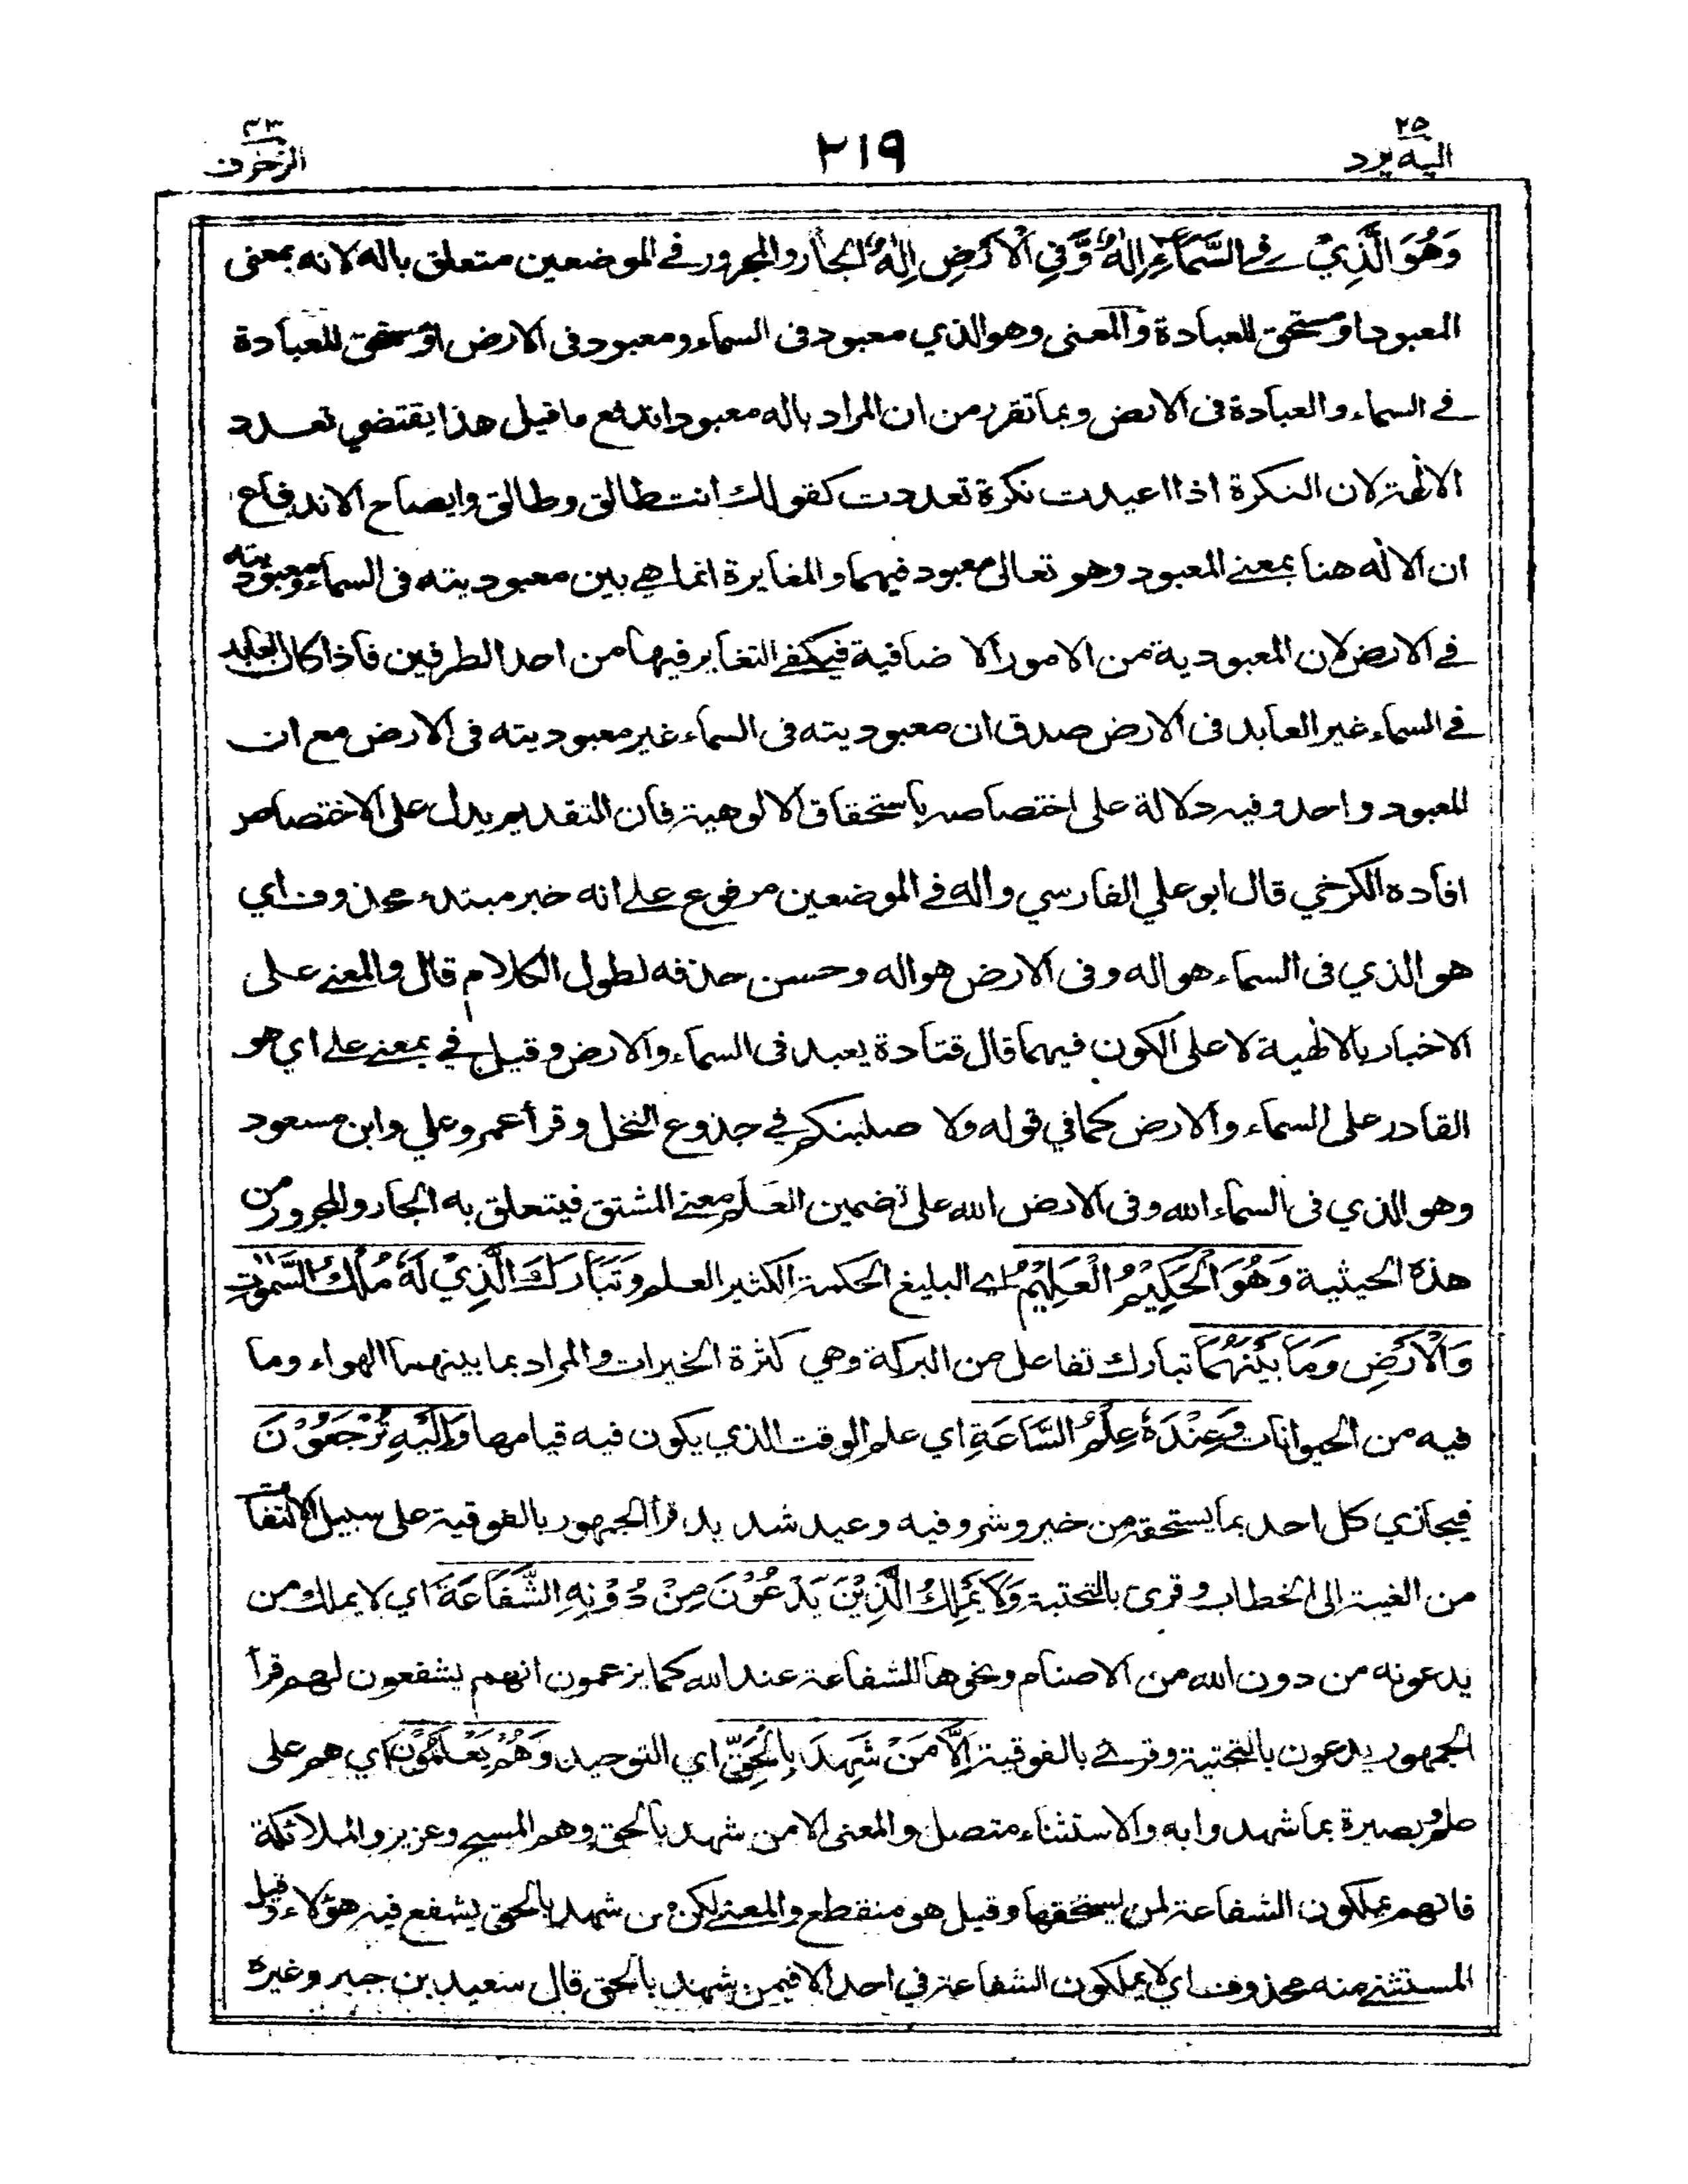 ٢٥
اليه يرد
٢١٩
٤٣
الزخرف
وَهُوَ الَّذِيْ فِي السَّمَآءِ اِلٰهٌ وَّفِي الْاَرْضِ اِلٰهٌ الجار والمجرور في الموضعين متعلق باله لانه بمعنى
المعبود او مستحق للعبادة والمعنى وهو الذي معبود فى السماء ومعبود فى الارض او مستحق للعبادة
في السماء والعبادة فى الارض وبما تقرر من ان المراد باله معبود اندفع ما قيل هذا يقتضي تعدد
الالٰهة لان النكرة اذا اعيدت نكرة تعددت كقولك انت طالق وطالق وايضاح الاندفاع
ان الالٰه هنا بمعنى المعبود وهو تعالى معبود فيهما والمغايرة انما هي بين معبوديته فى السماء ومعبوديته
في الارض لان المعبودية من الامور الاضافية فيكفي التغاير فيها من احد الطرفين فاذا كان العابد
في السماء غير العابد فى الارض صدق ان معبوديته فى السماء غير معبوديته فى الارض مع ان
المعبود واحد وفيه دلالة على اختصاصه باستحقاق الالوهية فان التقديم يدل على الاختصاص
افاده الكرخي قال ابو علي الفارسي واله في الموضعين مرفوع على انه خبر مبتدء محذوف اي
هو الذي فى السماء هو اله وفى الارض هو اله وحسن حذفه لطول الكلام قال والمعنى على
الاخبار بالالٰهية لا على الكون فيهما قال قتادة يعبد فى السماء والارض وقيل في بمعنى على اي هو
القادر على السماء والارض كما في قوله ولا صلبنكم في جذوع النخل وقرأ عمر وعلي وابن مسعود
وهو الذي فى السماء الله وفى الارض الله على تضمين العلم معنى المشتق فيتعلق به الجار والمجرور من
هذه الحيثية وَهُوَ الْحَكِيْمُ الْعَلِيْمُ اي البليغ الحكمة الكثير العلم وَتَبَارَكَ الَّذِيْ لَهٗ مُلْكُ السَّمٰوٰتِ
وَالْاَرْضِ وَمَا بَيْنَهُمَا تبارك تفاعل من البركة وهي كثرة الخيرات والمراد بما بينهما الهواء وما
فيه من الحيوانات وَعِنْدَهٗ عِلْمُ السَّاعَةِ اي علم الوقت الذي يكون فيه قيامها وَاِلَيْهِ تُرْجَعُوْنَ
فيجازي كل احد بما يستحقه من خير وشر وفيه وعيد شديد قرأ الجمهور بالفوقية على سبيل الالتفات
من الغيبة الى الخطاب وقرى بالتحتية وَلَا يَمْلِكُ الَّذِيْنَ يَدْعُوْنَ مِنْ دُوْنِهِ الشَّفَاعَةَ اي لا يملك من
يدعونه من دون الله من الاصنام ونحوها الشفاعة عند الله كما يزعمون انهم يشفعون لهم قرأ
الجمهور يدعون بالتحتية وقرئ بالفوقية اِلَّا مَنْ شَهِدَ بِالْحَقِّ اي التوحيد وَهُمْ يَعْلَمُوْنَ اي هم على
علم وبصيرة بما شهدوا به والاستثناء متصل والمعنى الا من شهد بالحق وهم المسيح وعزير والملائكة
فانهم يملكون الشفاعة لمن يستحقها وقيل هو منقطع والمعنى لكن من شهد بالحق يشفع فيه هؤلاء وقيل
المستثنى منه محذوف اي لا يملكون الشفاعة في احد الا فيمن شهد بالحق قال سعيد بن جبير وغيره